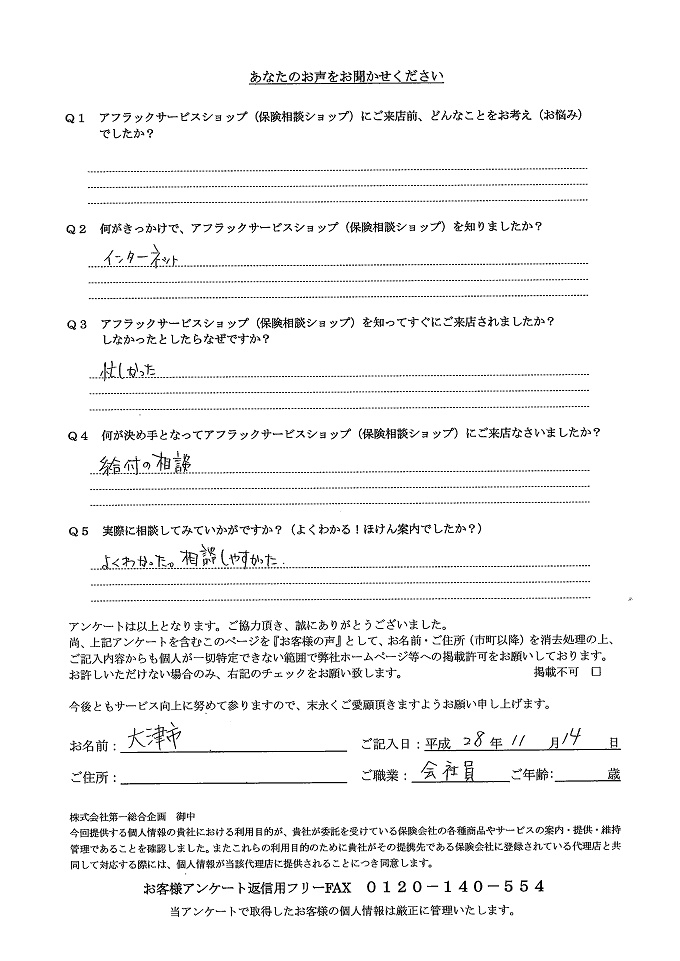 あなたのお声をお聞かせください
Q1 アフラックサービスショップ（保険相談ショップ）にご来店前、どんなことをお考え（お悩み）
でしたか？
Q2 何がきっかけで、アフラックサービスショップ（保険相談ショップ）を知りましたか？
インターネット
Q3 アフラックサービスショップ（保険相談ショップ）を知ってすぐにご来店されましたか？
しなかったとしたらなぜですか？
忙しかった
Q4 何が決め手となってアフラックサービスショップ（保険相談ショップ）にご来店なさいましたか？
給付の相談
Q5 実際に相談してみていかがですか？（よくわかる！ほけん案内でしたか？）
よくわかった。相談しやすかった.
アンケートは以上となります。ご協力頂き、誠にありがとうございました。
尚、上記アンケートを含むこのページを『お客様の声』として、お名前・ご住所（市町以降）を消去処理の上、
ご記入内容からも個人が一切特定できない範囲で弊社ホームページ等への掲載許可をお願いしております。
お許しいただけない場合のみ、右記のチェックをお願い致します。 掲載不可 □
今後ともサービス向上に努めて参りますので、末永くご愛顧頂きますようお願い申し上げます。
お名前：大津市 ご記入日：平成 28 年 11 月 14 日
ご住所： ご職業：会社員 ご年齢： 歳
株式会社第一総合企画 御中
今回提供する個人情報の貴社における利用目的が、貴社が委託を受けている保険会社の各種商品やサービスの案内・提供・維持
管理であることを確認しました。またこれらの利用目的のために貴社がその提携先である保険会社に登録されている代理店と共
同して対応する際には、個人情報が当該代理店に提供されることにつき同意します。
お客様アンケート返信用フリーFAX ０１２０－１４０－５５４
当アンケートで取得したお客様の個人情報は厳正に管理いたします。